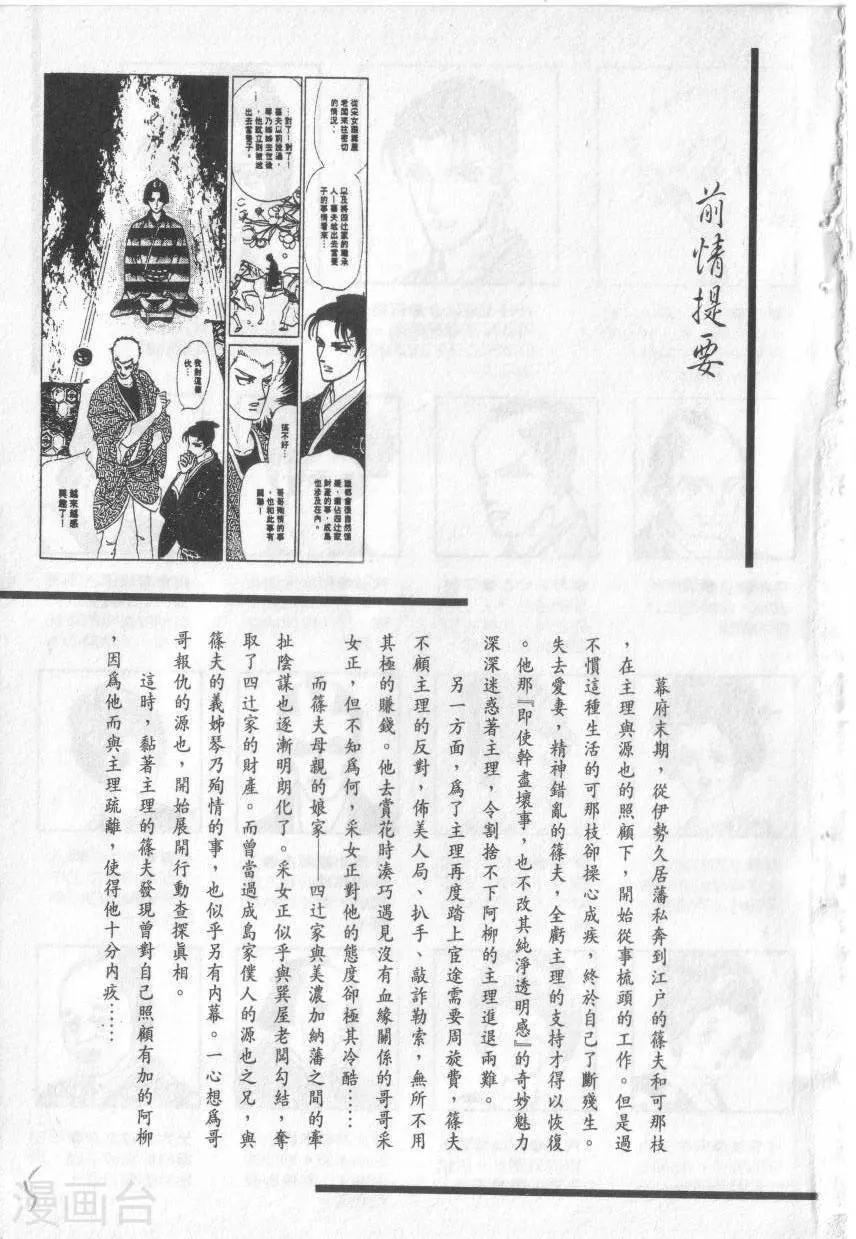 前情提要
從采女跟巽屋
老闆來往密切
的情況…
以及將四辻家的繼承
人—篠夫送出去當養
子的事情看來…
誰都會很自然懷
疑，霸佔四辻家
財產的事，成島
也涉及在內。
…對了！對了！
篠夫以前說過，
琴乃姊姊去世後
，他就立刻被送
出去當養子。
…
搞不好…
哥哥殉情的事
，也和此事有
關聯！
我對這傢
伙…
越來越感
興趣了！
幕府末期，從伊勢久居藩私奔到江户的篠夫和可那枝
，在主理與源也的照顧下，開始從事梳頭的工作。但是過
不慣這種生活的可那枝卻操心成疾，終於自己了斷殘生。
失去愛妻，精神錯亂的篠夫，全虧主理的支持才得以恢復
。他那『即使幹盡壞事，也不改其純淨透明感』的奇妙魅力
深深迷惑著主理，令割捨不下阿柳的主理進退兩難。
另一方面，爲了主理再度踏上宦途需要周旋費，篠夫
不顧主理的反對，佈美人局、扒手、敲詐勒索，無所不用
其極的賺錢。他去賞花時湊巧遇見沒有血緣關係的哥哥采
女正，但不知爲何，采女正對他的態度卻極其冷酷……
而篠夫母親的娘家——四辻家與美濃加納藩之間的牽
扯陰謀也逐漸明朗化了。采女正似乎與巽屋老闆勾結，奪
取了四辻家的財產。而曾當過成島家僕人的源也之兄，與
篠夫的義姊琴乃殉情的事，也似乎另有内幕。一心想爲哥
哥報仇的源也，開始展開行動查探眞相。
這時，黏著主理的篠夫發現曾對自己照顧有加的阿柳
，因爲他而與主理疏離，使得他十分内疚……
漫画台